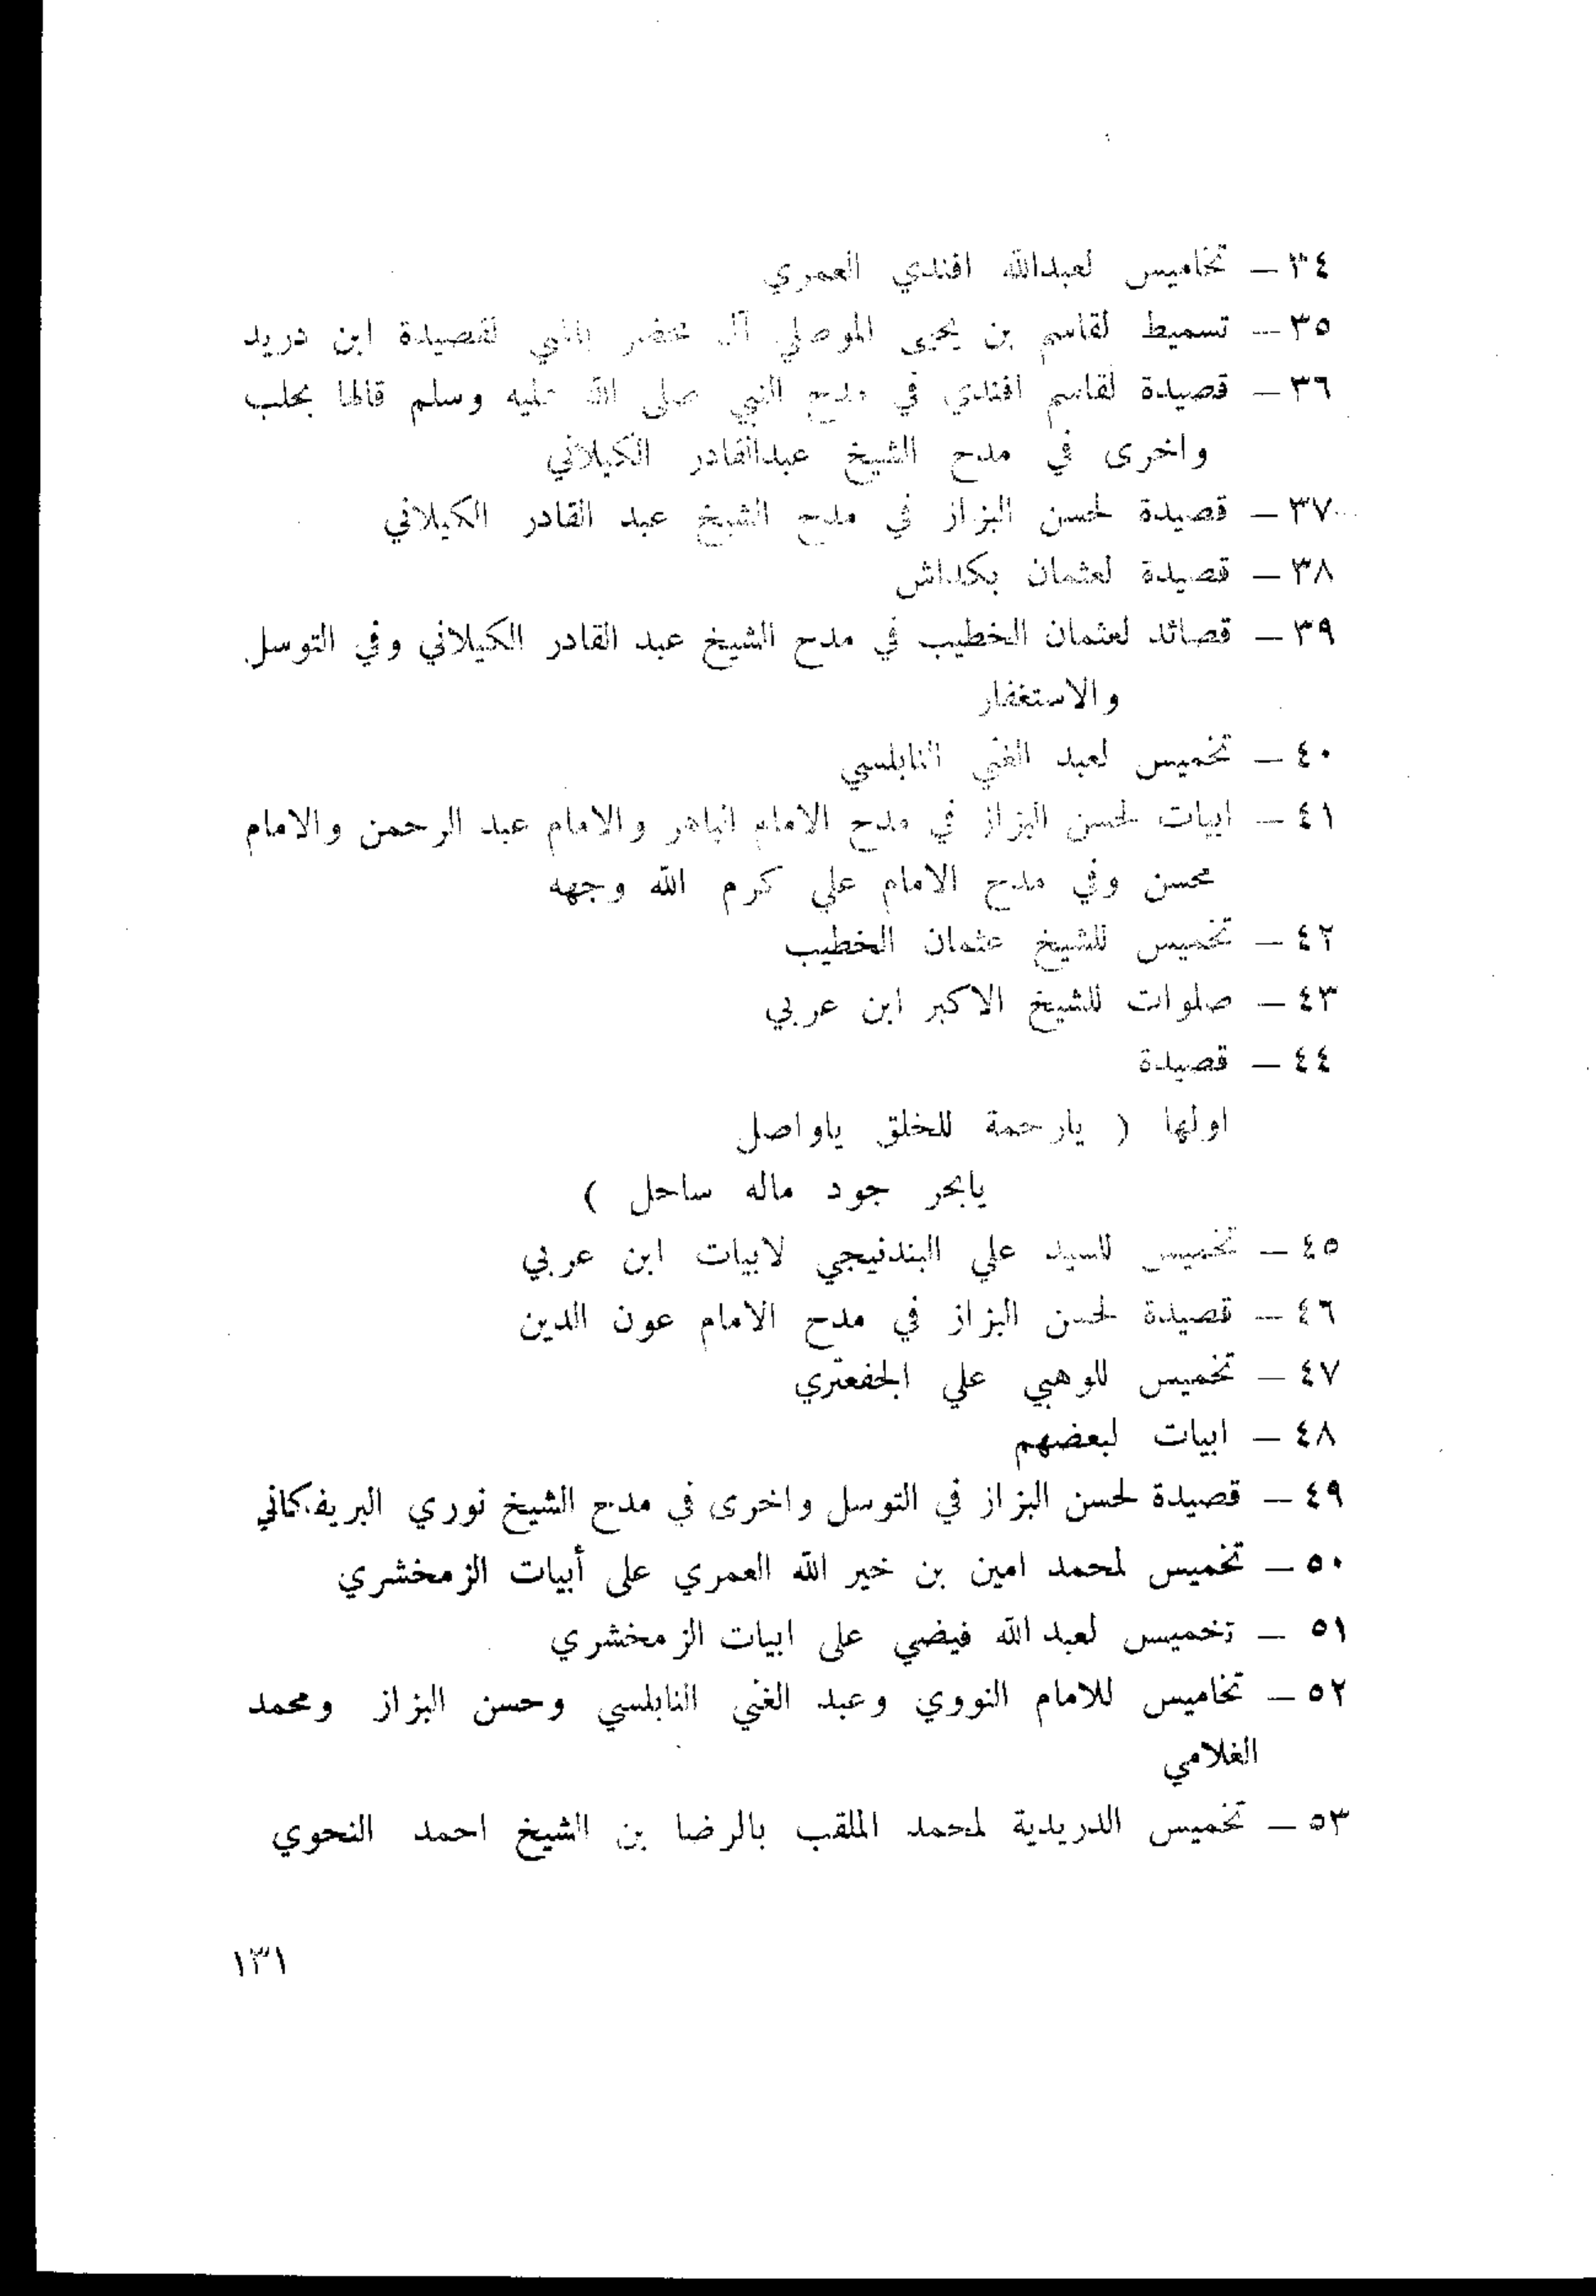 ٣٤ — تخاميس لعبدالله افندي العمري
٣٥ — تسميط لقاسم بن يحيى الموصلي آل محضر باشي لقصيدة ابن دريد
٣٦ — قصيدة لقاسم افندي في مدح النبي صلى الله عليه وسلم قالها بحلب
واخرى في مدح الشيخ عبدالقادر الكيلاني
٣٧ — قصيدة لحسن البزاز في مدح الشيخ عبد القادر الكيلاني
٣٨ — قصيدة لعثمان بكداش
٣٩ — قصائد لعثمان الخطيب في مدح الشيخ عبد القادر الكيلاني وفي التوسل
والاستغفار
٤٠ — تخميس لعبد الغني النابلسي
٤١ — ابيات لحسن البزاز في مدح الامام الباهر والامام عبد الرحمن والامام
محسن وفي مدح الامام علي كرم الله وجهه
٤٢ — تخميس للشيخ عثمان الخطيب
٤٣ — صلوات للشيخ الاكبر ابن عربي
٤٤ — قصيدة
اولها ( يارحمة للخلق ياواصل
يابحر جود ماله ساحل )
٤٥ — تخميس للسيد علي البندنيجي لابيات ابن عربي
٤٦ — قصيدة لحسن البزاز في مدح الامام عون الدين
٤٧ — تخميس للوهبي علي الجفعتري
٤٨ — ابيات لبعضهم
٤٩ — قصيدة لحسن البزاز في التوسل واخرى في مدح الشيخ نوري البريفكاني
٥٠ — تخميس لمحمد امين بن خير الله العمري على أبيات الزمخشري
٥١ — تخميس لعبد الله فيضي على ابيات الزمخشري
٥٢ — تخاميس للامام النووي وعبد الغني النابلسي وحسن البزاز ومحمد
الغلامي
٥٣ — تخميس الدريدية لمحمد الملقب بالرضا بن الشيخ احمد النحوي
١٣١